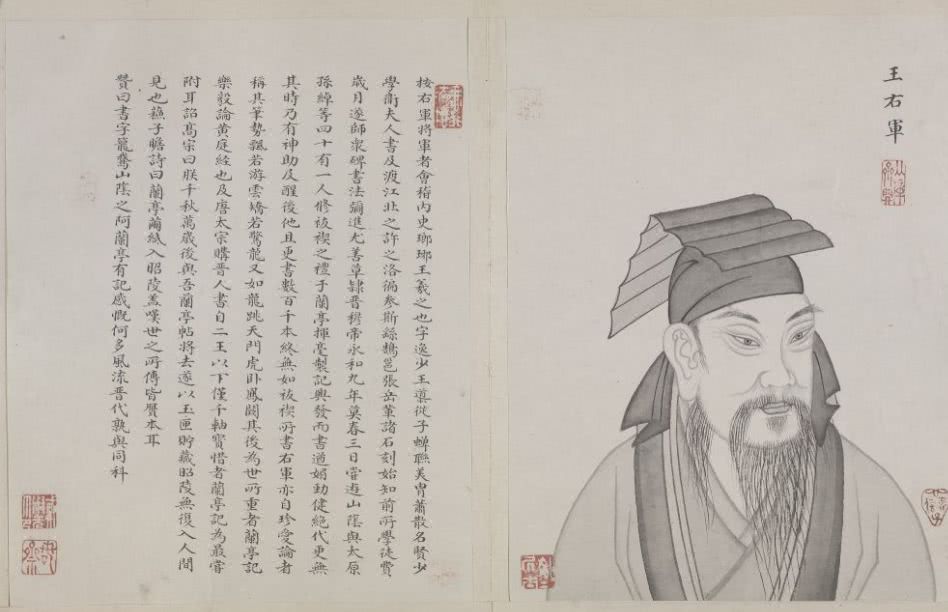 王右軍
按右軍將軍者會稽內史瑯琊王羲之也字逸少王導從子蟬聯美胄蕭散名賢少
學衛夫人書及渡江北之許之洛徧參斯繇鵠邕張岳華諸石刻始知前所學徒費
歲月遂師衆碑書法彌進尤善草隸晉穆帝永和九年莫春三日嘗遊山陰與太原
孫綽等四十有一人修祓禊之禮于蘭亭揮毫製記興發而書遒媚勁健絕代更無
其時乃有神助及醒後他且更書數百千本終無如祓禊所書右軍亦自珍愛論者
稱其筆勢飄若游雲矯若驚龍又如龍跳天門虎卧鳳闕其後為世所重者蘭亭記
樂毅論黃庭經也及唐太宗購晉人書自二王以下僅千軸寶惜者蘭亭記為最嘗
附耳詔高宗曰朕千秋萬歲後與吾蘭亭帖將去遂以玉匣貯藏昭陵無復入人間
見也蘇子瞻詩曰蘭亭繭紙入昭陵蓋嘆世之所傳皆贗本耳
贊曰書字籠鵞山陰之阿蘭亭有記感慨何多風流晉代孰與同科